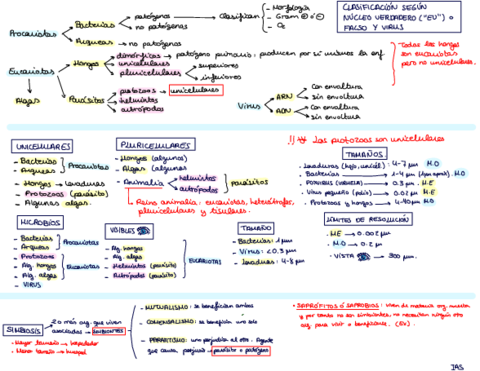 CLASIFICACIÓN SEGÚN
NÚCLEO VERDADERO ("EU") o
FALSO Y VIRUS
Procariotas
Bacterias
patógenas
no patógenas
Clasifican
Morfología
Gram ⊕ o ⊖
O₂
Arqueas → no patógenas
Eucariotas
Hongos
dimórficos → patógeno primario, producen por sí mismos la enf.
unicelulares
pluricelulares
superiores
inferiores
Todos los hongos
son eucariotas
pero no unicelulares.
Algas
Parásitos
protozoos → unicelulares
helmintos
artrópodos
Virus
ARN
Con envoltura
Sin envoltura
ADN
Con envoltura
Sin envoltura
!! Los protozoos son unicelulares
UNICELULARES
- Bacterias
- Arqueas
Procariotas
- Hongos → levaduras
- Protozoos (parásito)
- Algunas algas.
PLURICELULARES
- Hongos (algunos)
- Algas (algunas)
- Animalia
helmintos
artrópodos
parásitos
Reino animalia: eucariotas, heterótrofos,
pluricelulares y tisulares.
TAMAÑOS
- Levaduras → 4-7 µm M.O
- Bacterias → 1-4 µm M.O
- POXVIRUS (VIRUELA) → 0.3 µm M.E
- Virus pequeño (polio) → 0.02 µm M.E
- Protozoos y hongos → 4-40 µm M.O
LÍMITES DE RESOLUCIÓN
- M.E → 0.002 µm
- M.O → 0.2 µm
- VISTA → 300 µm.
MICROBIOS
- Bacterias
- Arqueas
Procariotas
- Protozoos
- Alg. hongos
- Alg. algas
Eucariotas
- VIRUS
VISIBLES
- Alg. hongos
- Alg. algas
- Helmintos (parásito)
- Artrópodos (parásito)
EUCARIOTAS
TAMAÑO
- Bacterias: 1 µm
- Virus: < 0.3 µm
- Levaduras: 4-8 µm
SIMBIOSIS
2 o más org. que viven
asociados → SIMBIONTES
- Mayor tamaño → hospedador
- Menor tamaño → huésped
- MUTUALISMO: se benefician ambos
- COMENSALISMO: se beneficia uno solo
- PARASITISMO: uno perjudica al otro. Agente
que causa perjuicio → parásito o patógeno
• SAPRÓFITOS O SAPROBIOS: viven de materia org. muerta
y por tanto no son simbiontes, no necesitan ningún otro
org. para vivir o beneficiarse. (EU)
IAS